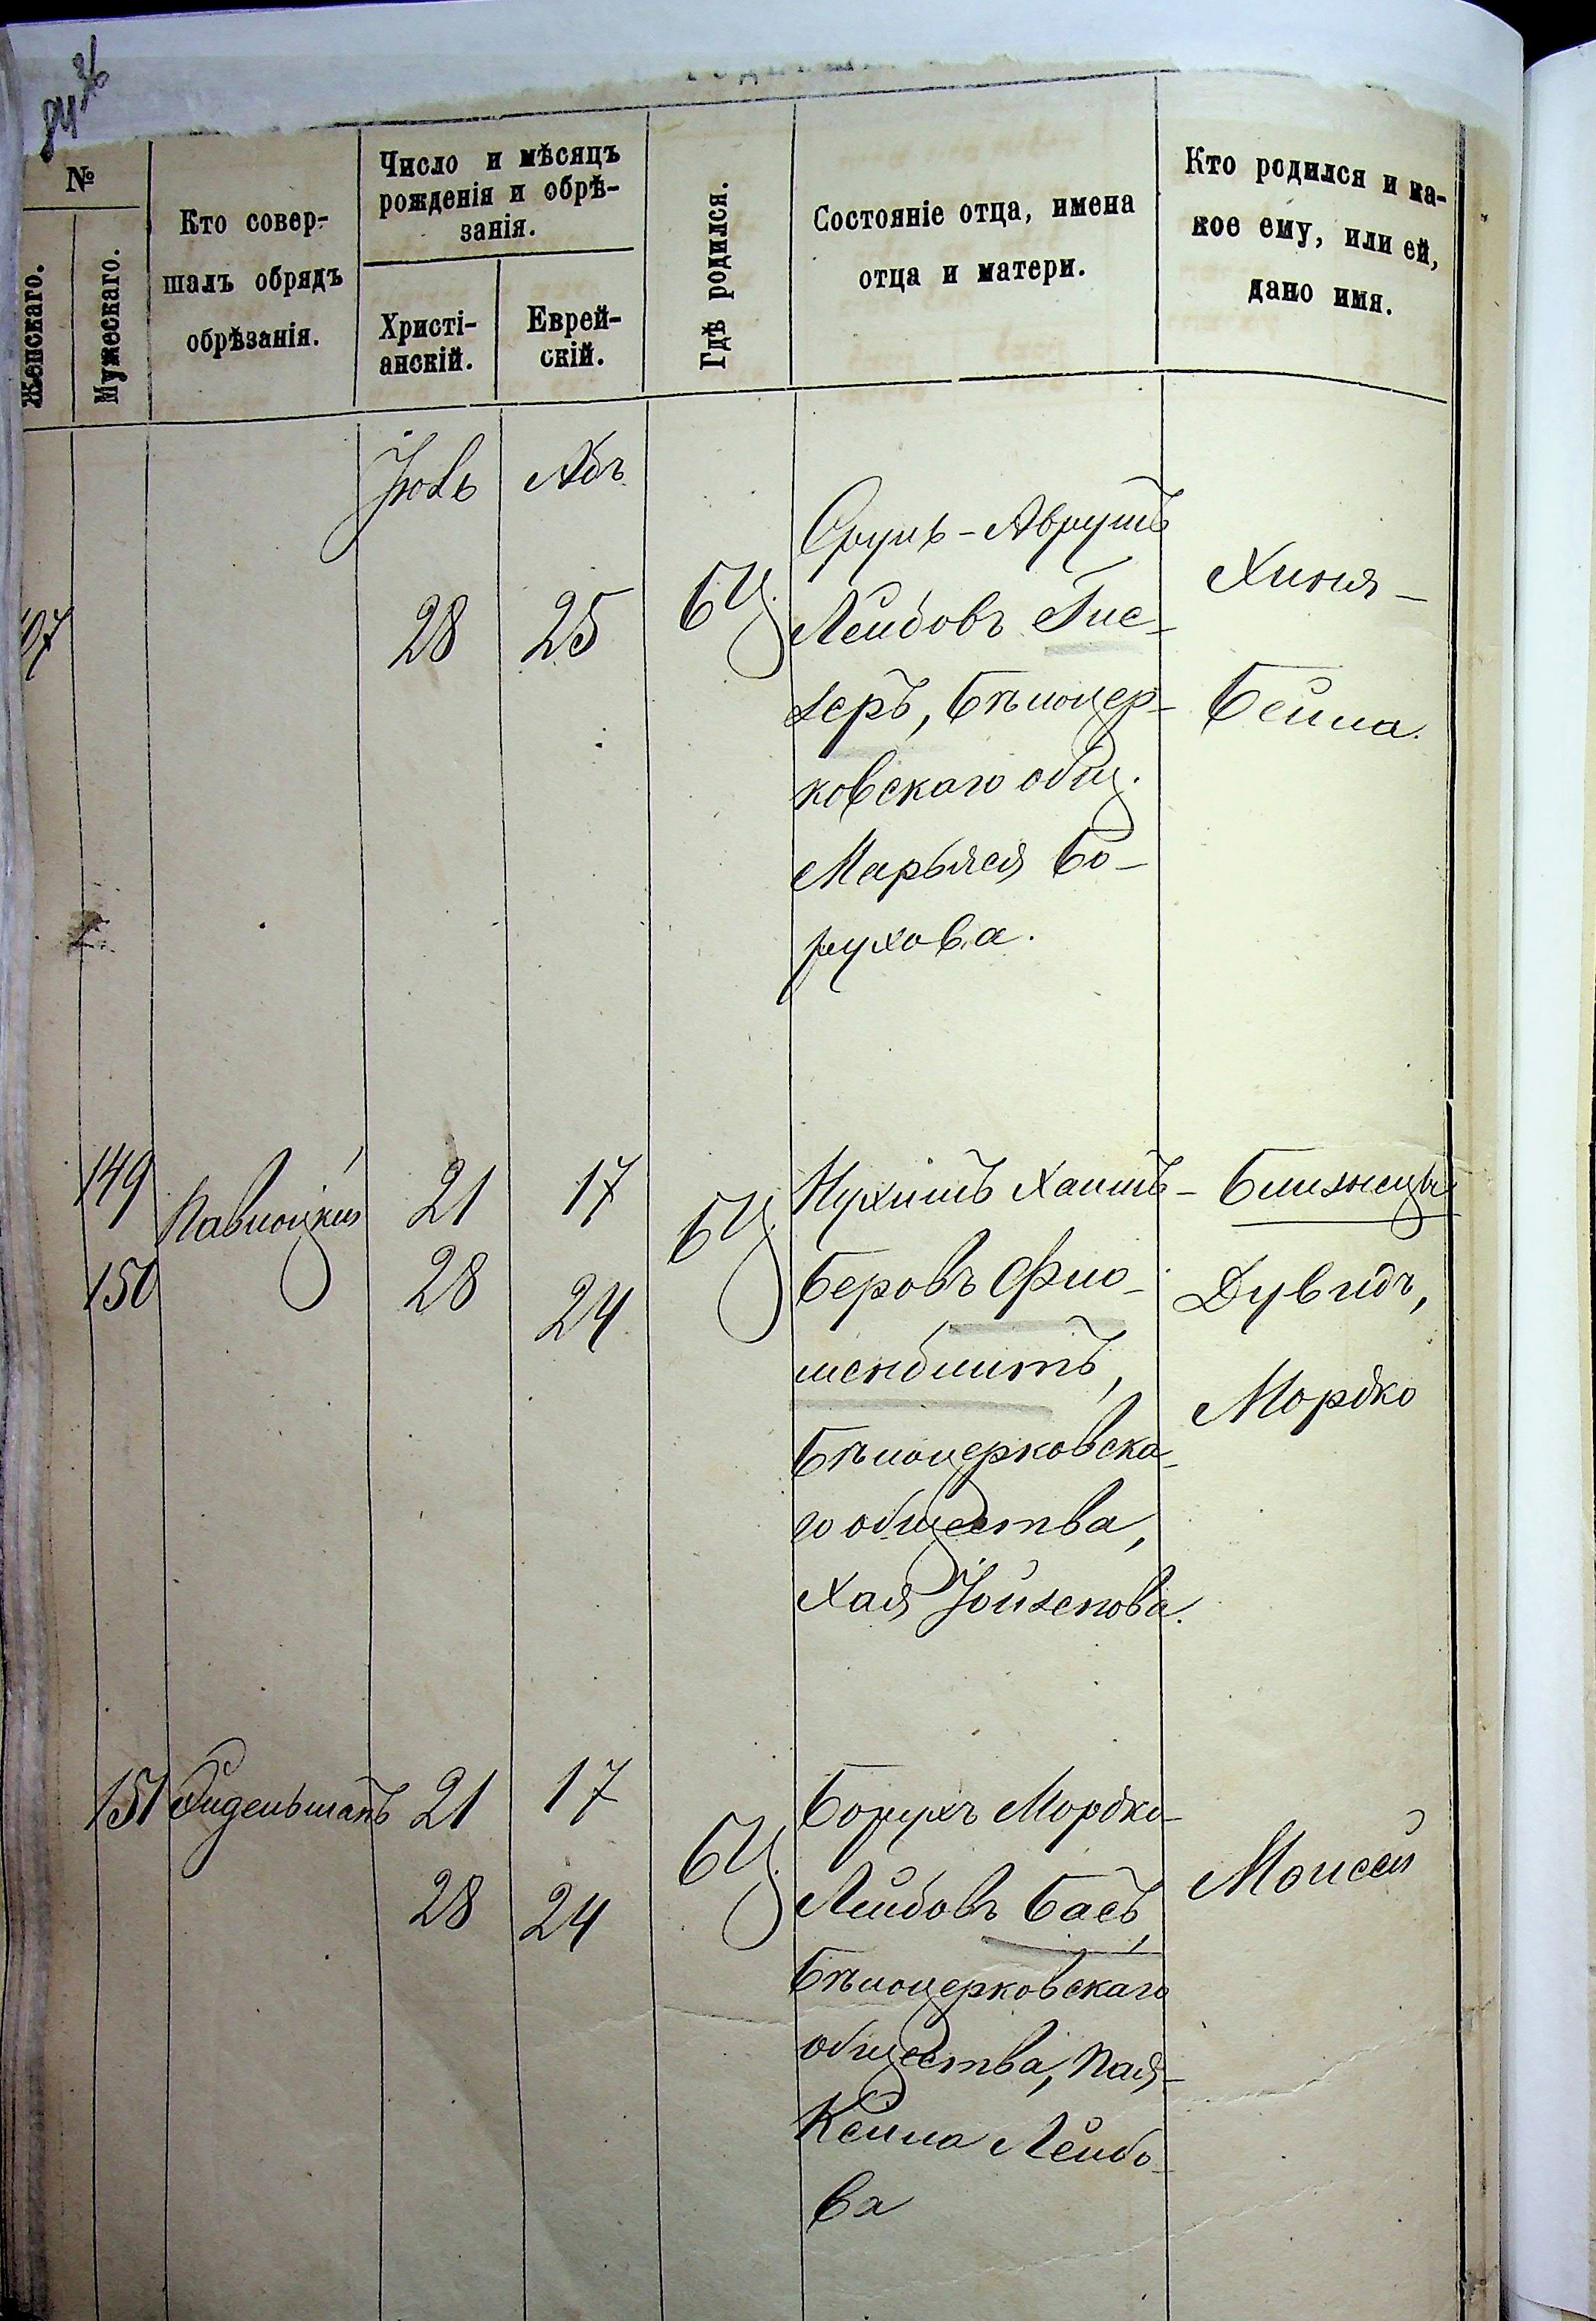 36
84
№
Женскаго.
Мужескаго.
Кто совер-
шалъ обрядъ
обрѣзанія.
Число и мѣсяцъ
рожденія и обрѣ-
занія.
Христі-
анскій.
Еврей-
скій.
Гдѣ родился.
Состояніе отца, имена
отца и матери.
Кто родился и ка-
кое ему, или ей,
дано имя.
Іюль
Абъ
107
28
25
БЦ.
Сруль-Аврумъ
Лейбовъ Гис-
зеръ, Бѣлоцер-
ковскаго общ.
Марьяся Бо-
рухова.
Хиня-
Бейла.
149
150
Павлоцкій
21
28
17
24
БЦ.
Нухимъ Хаимъ-
Беровъ Фин-
Бѣлоцерковска-
го общества,
Хая
Близнецы
Дувидъ,
Мордко
151
21
28
17
24
БЦ.
Борухъ Мордко-
Лейбовъ Басъ,
Бѣлоцерковскаго
общества,
Кейла Лейбо-
ва
Моисей